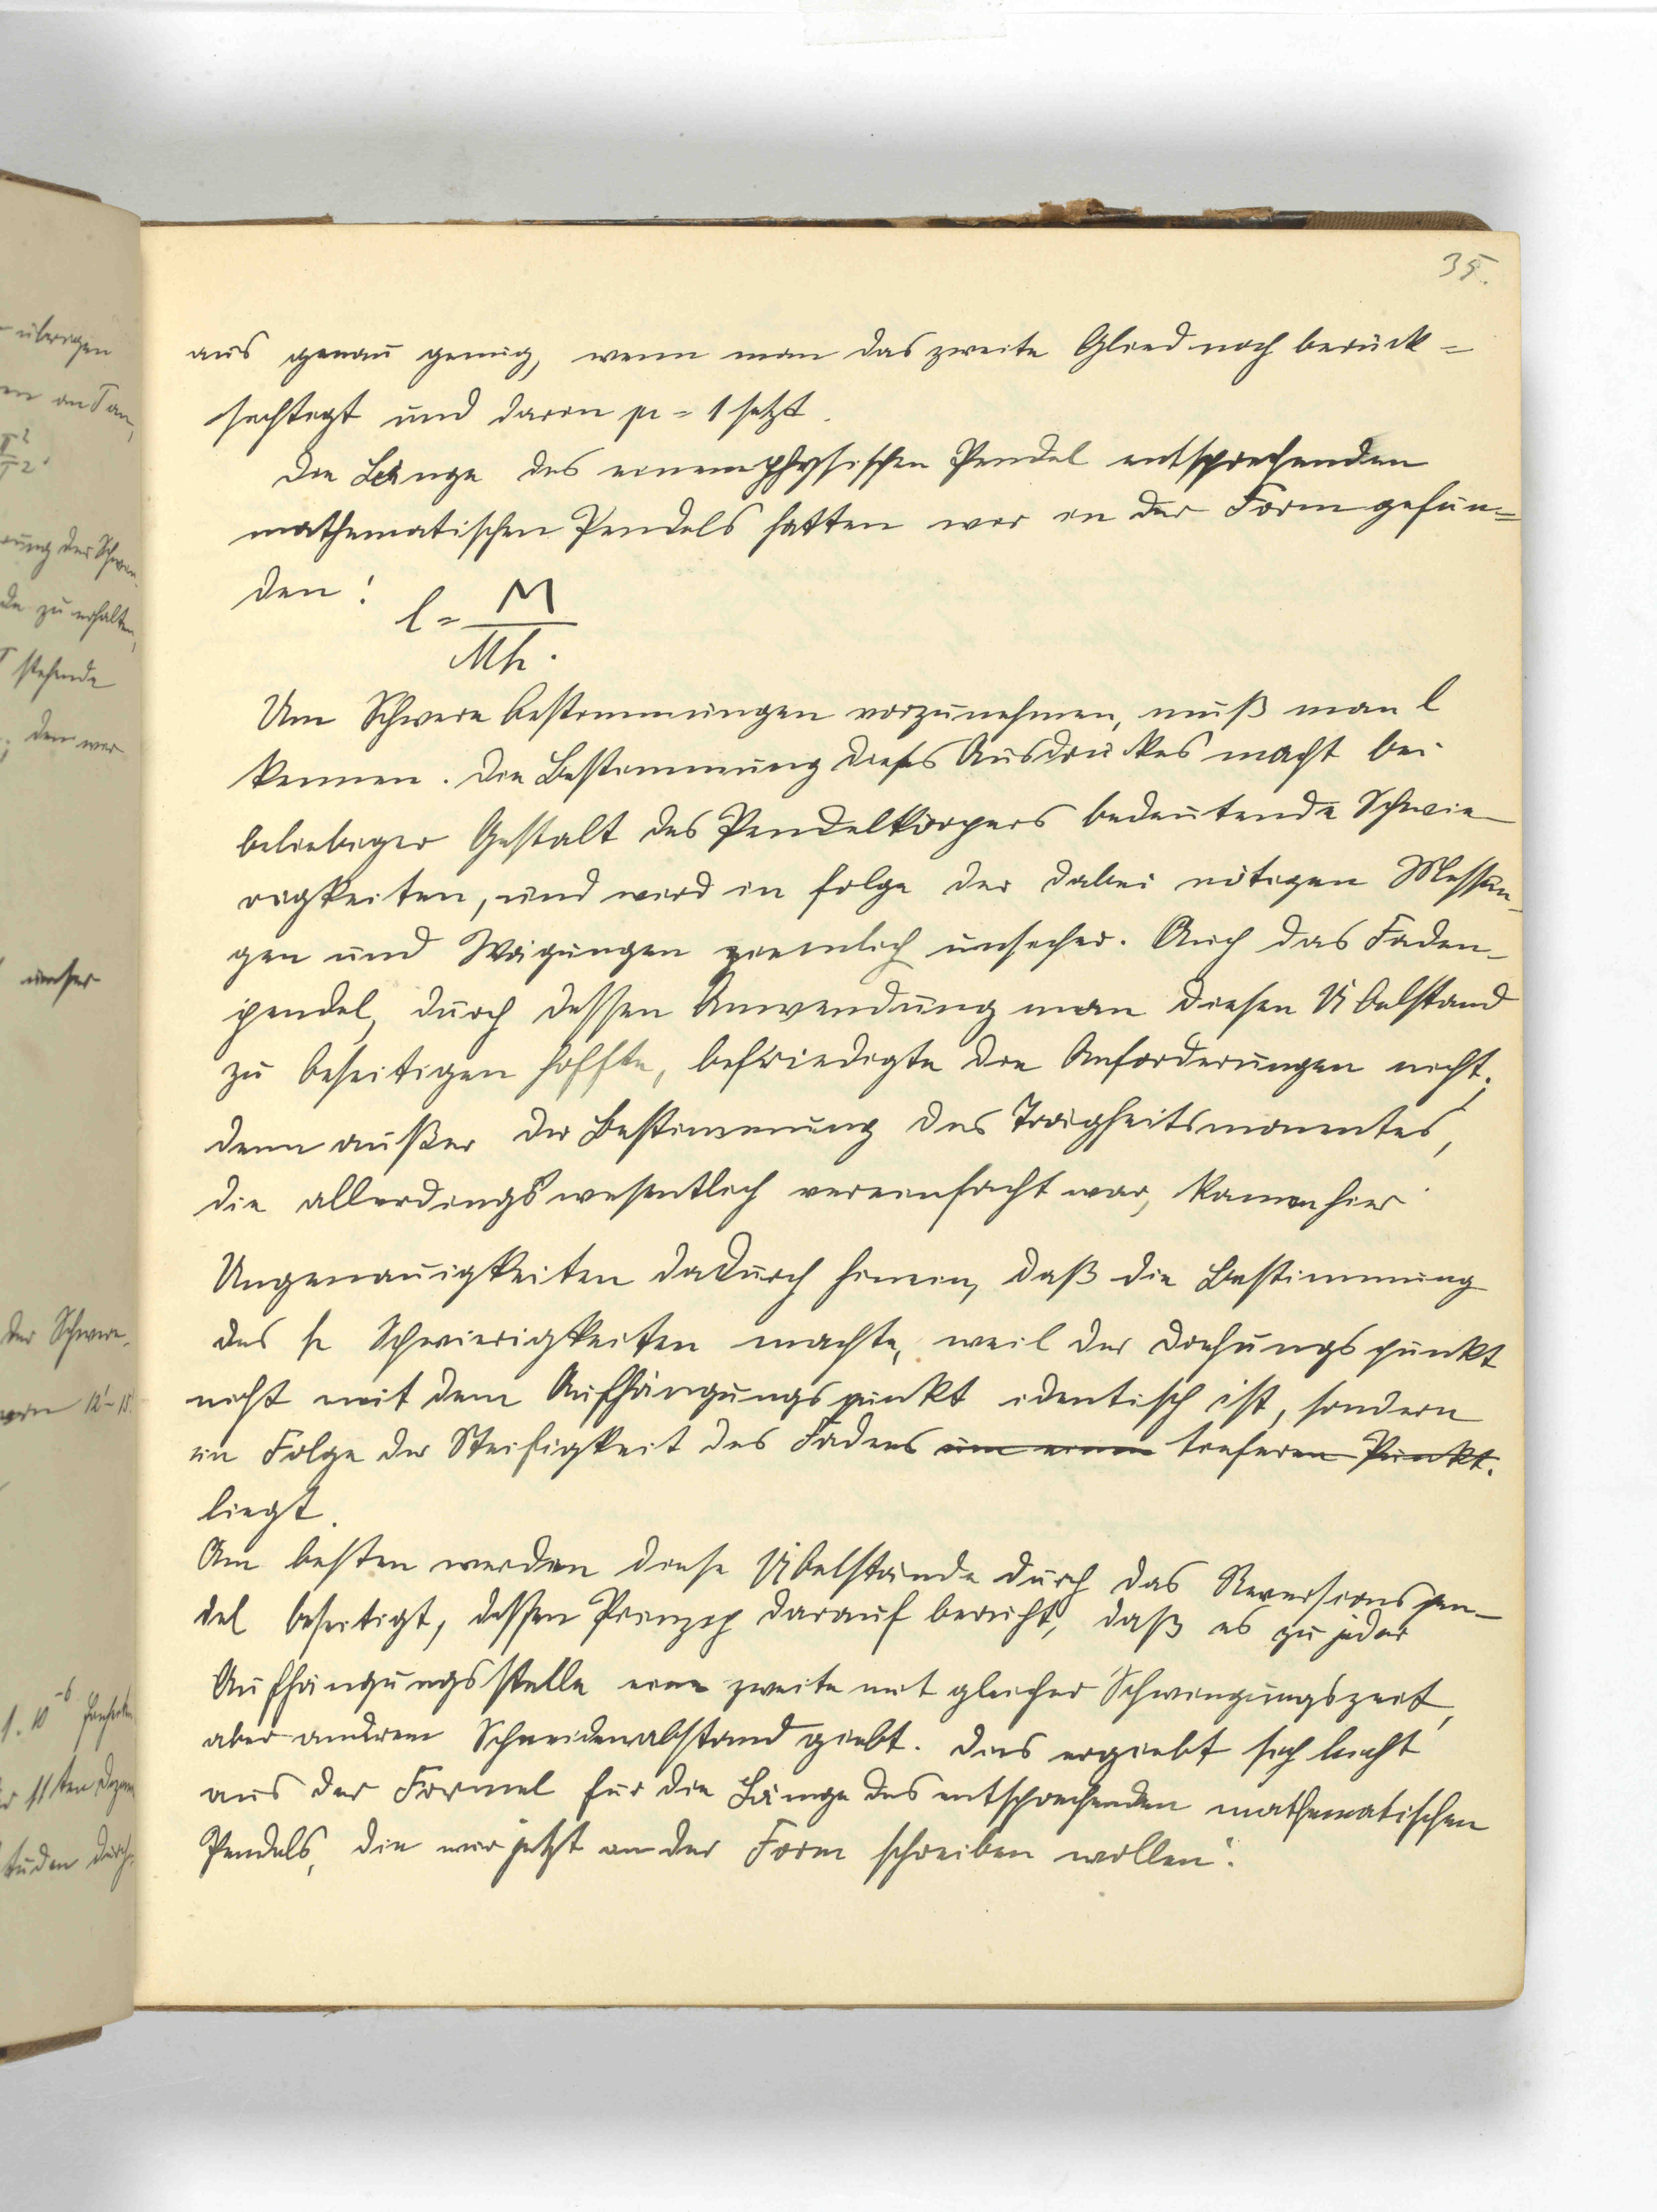 35.
aus genau genug, wenn man das zweite Glied noch berück=
sichtigt und darin μ = 1 setzt.
Die Länge des einem physischen Pendel entsprechenden
mathematischen Pendels hatten wir in der Form gefun=
den:
l = M / Mh.
Um Schwere bestimmungen vorzunehmen, muß man l
kennen. Die Bestimmung dieses Ausdruckes macht bei
beliebiger Gestalt des Pendelkörpers bedeutende Schwie-
rigkeiten, und wird in folge der dabei nötigen Messun-
gen und Wägungen ziemlich unsicher. Auch das Faden-
pendel, durch dessen Anwendung man diesen Übelstand
zu beseitigen hoffte, befriedigte die Anforderungen nicht;
denn außer der Bestimmung des Trägheitsmomentes,
die allerdings wesentlich vereinfacht war, kamen hier
Ungenauigkeiten dadurch hinein, daß die Bestimmung
des h Schwierigkeiten machte, weil der Drehungspunkt
nicht mit dem Aufhängungspunkt identisch ist, sondern
in Folge der Steifigkeit des Fadens um einen tieferen Punkt.
liegt.
Am besten werden diese Übelstände durch das Reversionspen-
del beseitigt, dessen Prinzip darauf beruht, daß es zu jeder
Aufhängungsstelle eine zweite mit gleicher Schwingungszeit,
aber anderem Schneidenabstand giebt. Dies ergiebt sich leicht
aus der Formel für die Länge des entsprechenden mathematischen
Pendels, die wir jetzt in der Form schreiben wollen:
übrigen
zu erhalten,
stehende
unser
der Schwere-